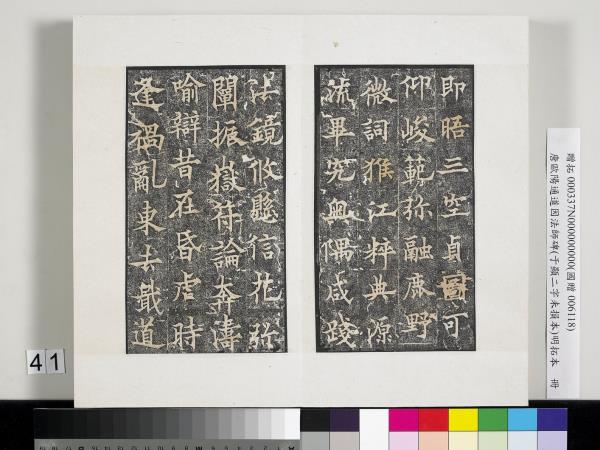 即晤三空貞圖可
仰峻範弥融鹿野
微詞猴江粹典源
流畢究奧隅咸踐
法鏡攸懸信花弥
闡振嶽符論奔濤
喻辯昔在昏虐時
逢禍亂東去戢道
贈拓 000337N000000000(國贈 006118)
唐歐陽通道因法師碑(于顯二字未損本)明拓本 冊
41